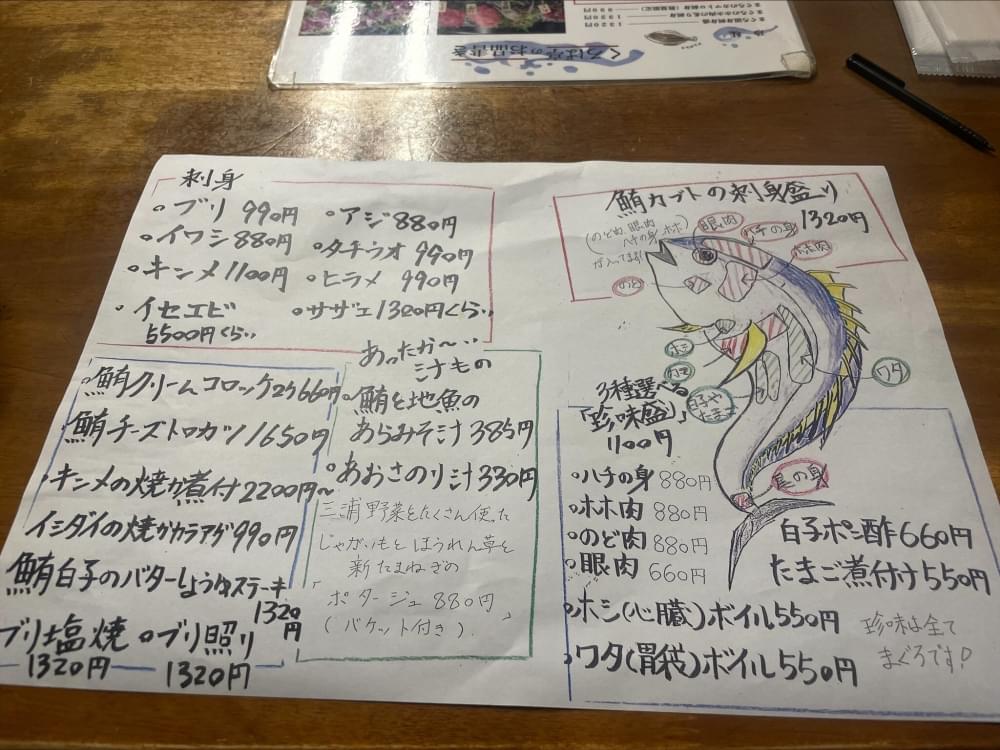 くろば亭のお品書き
1320円
1320円
990円
刺身
・ブリ 990円
・アジ 880円
・イワシ 880円
・タチウオ 990円
・キンメ 1100円
・ヒラメ 990円
・イセエビ
5500円くらい
・サザエ 1320円くらい
・鮪クリームコロッケ2ケ660円
鮪チーズトロカツ 1650円
キンメの焼か煮付2200円~
イシダイの焼かカラアゲ990円
鮪白子のバターしょうゆステーキ
1320円
ブリ塩焼
1320円
・ブリ照り
1320円
あったか〜い
汁もの
・鮪と地魚の
あらみそ汁 385円
・あおさのり汁 330円
三浦野菜をたくさん使った
じゃがいもとほうれん草と
新たまねぎの
「ポタージュ 880円」
(バケット付き)
鮪カブトの刺身盛り
1320円
(のど肉、眼肉
ハチの身、ホホ
が入ってます)
眼肉
ハチの身
ホホ肉
のど
ホシ
ワタ
白子や
たまご
尾の身
3種選べる
「珍味盛」
1100円
・ハチの身 880円
・ホホ肉 880円
・のど肉 880円
・眼肉 660円
白子ポン酢 660円
たまご煮付け 550円
・ホシ(心臓)ボイル550円
・ワタ(胃袋)ボイル550円
珍味は全て
まぐろです!